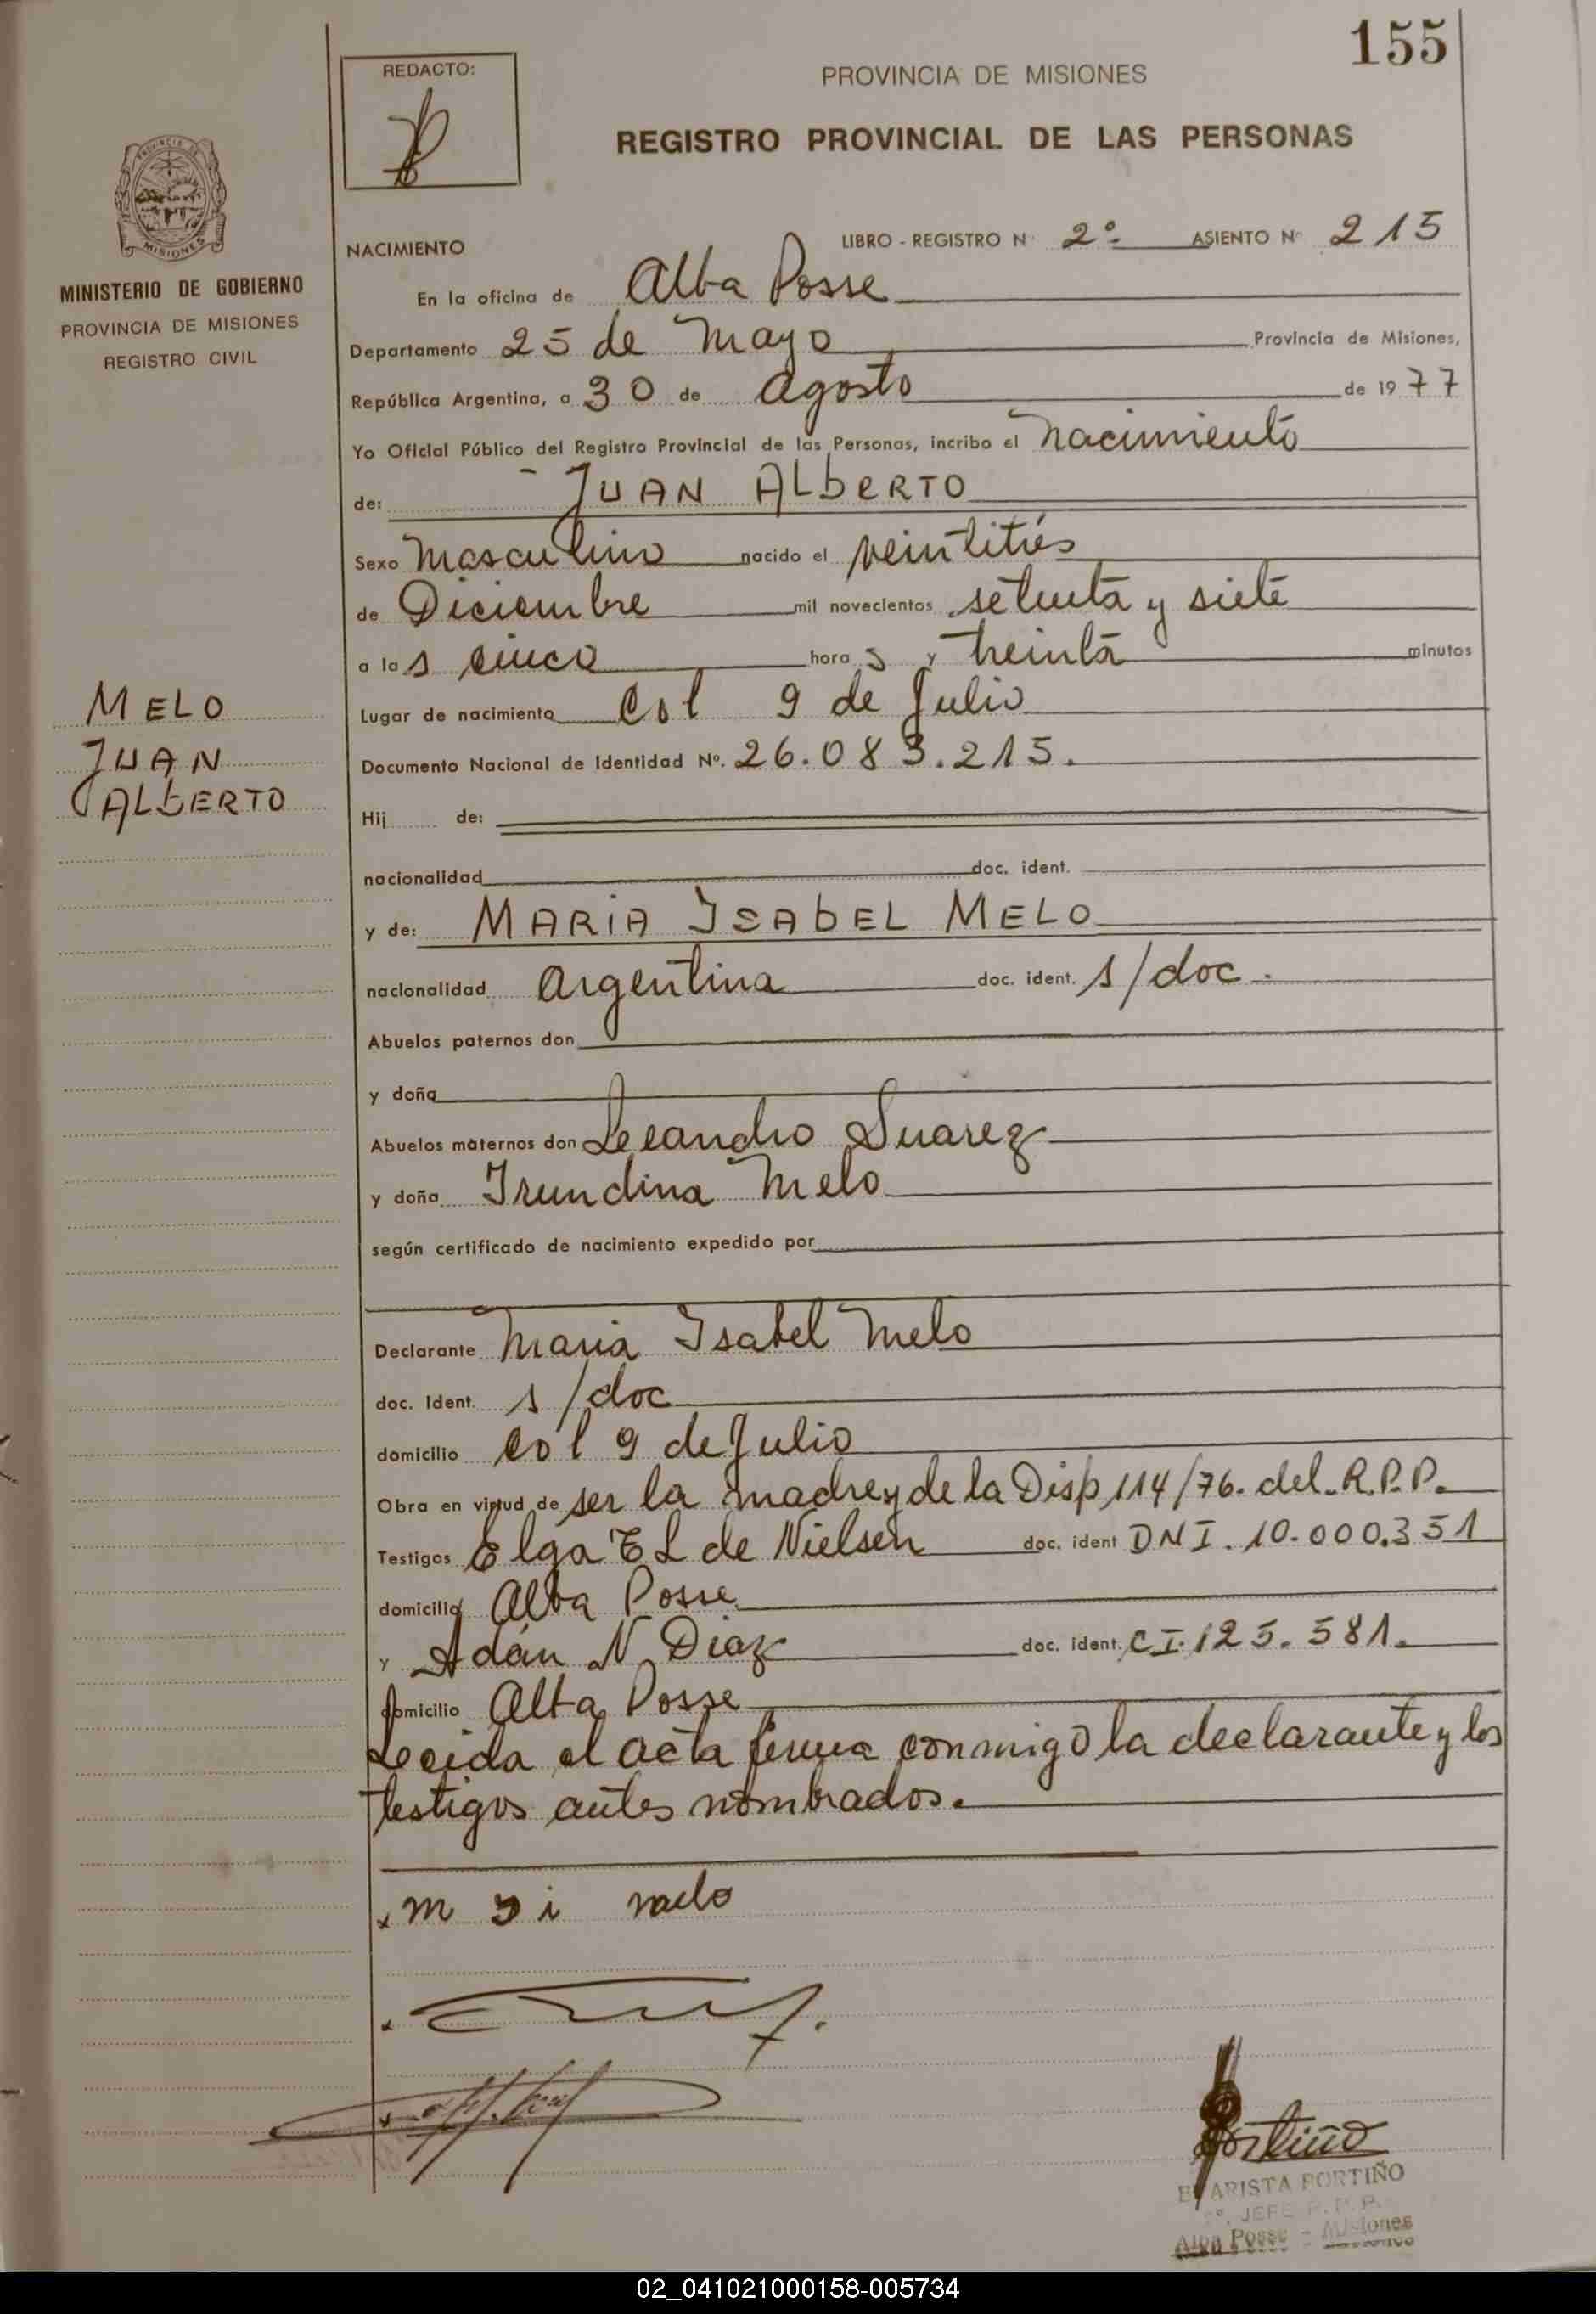 155
REDACTO:
PROVINCIA DE MISIONES
REGISTRO PROVINCIAL DE LAS PERSONAS
MISIONES
MINISTERIO DE GOBIERNO
PROVINCIA DE MISIONES
REGISTRO CIVIL
NACIMIENTO LIBRO - REGISTRO Nº 2º ASIENTO Nº 215
En la oficina de Alba Posse
Departamento 25 de Mayo Provincia de Misiones,
República Argentina, a 30 de Agosto de 1977
Yo Oficial Público del Registro Provincial de las Personas, incribo el nacimiento
de: JUAN ALbERTO
Sexo Masculino nacido el veintitrés
de Diciembre mil novecientos setenta y siete
a las cinco horas y treinta minutos
Lugar de nacimiento Col 9 de Julio
Documento Nacional de Identidad Nº. 26.083.215.
MELO
JUAN
ALbERTO
Hij de:
nacionalidad doc. ident.
y de: MARiA ISAbEL MELO
nacionalidad Argentina doc. ident. s/doc.
Abuelos paternos don
y doña
Abuelos maternos don Leeandro Suarez
y doña Irundina Melo
según certificado de nacimiento expedido por
Declarante Maria Isabel Melo
doc. Ident. s/doc
domicilio Col 9 de Julio
Obra en virtud de ser la madre y de la Disp 114/76. del. R.P.P.
Testigos Elga E L de Nielsen doc. ident DNI. 10.000.351
domicilio Alba Posse
y Adán N Diaz doc. ident. CI.125.581.
domicilio Alba Posse
Leeida el acta firma conmigo la declarante y los
testigos antes nombrados.
x m i
Portiño
EVARISTA PORTIÑO
JEFE R.P.P.
Alba Posse - Misiones
02_041021000158-005734